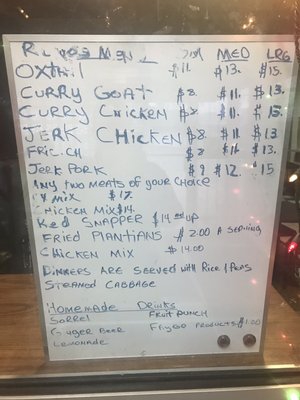 MED LRG
OXtail $11. $13. $15.
CURRY GOAT $8. $11. $13.
CURRY CHICKEN $8. $11. $13.
JERK CHICKEN $8. $11 $13
FRIC.CH $8 $11. $13.
JERK PORK $9 $12. $15
Any two meats of your CHOICE
MIX $17.
CHICKEN MIX $14.
Red SNAPPER $14.00 UP
FRIED PLANTIANS $2.00 A SERVING
CHICKEN MIX $14.00
DINNERS ARE SERVED with Rice & Peas
STEAMED CABBAGE
Homemade Drinks
Sorrel FRUIT PUNCH
Ginger BEER PRODUCTS $1.00
LEMONADE